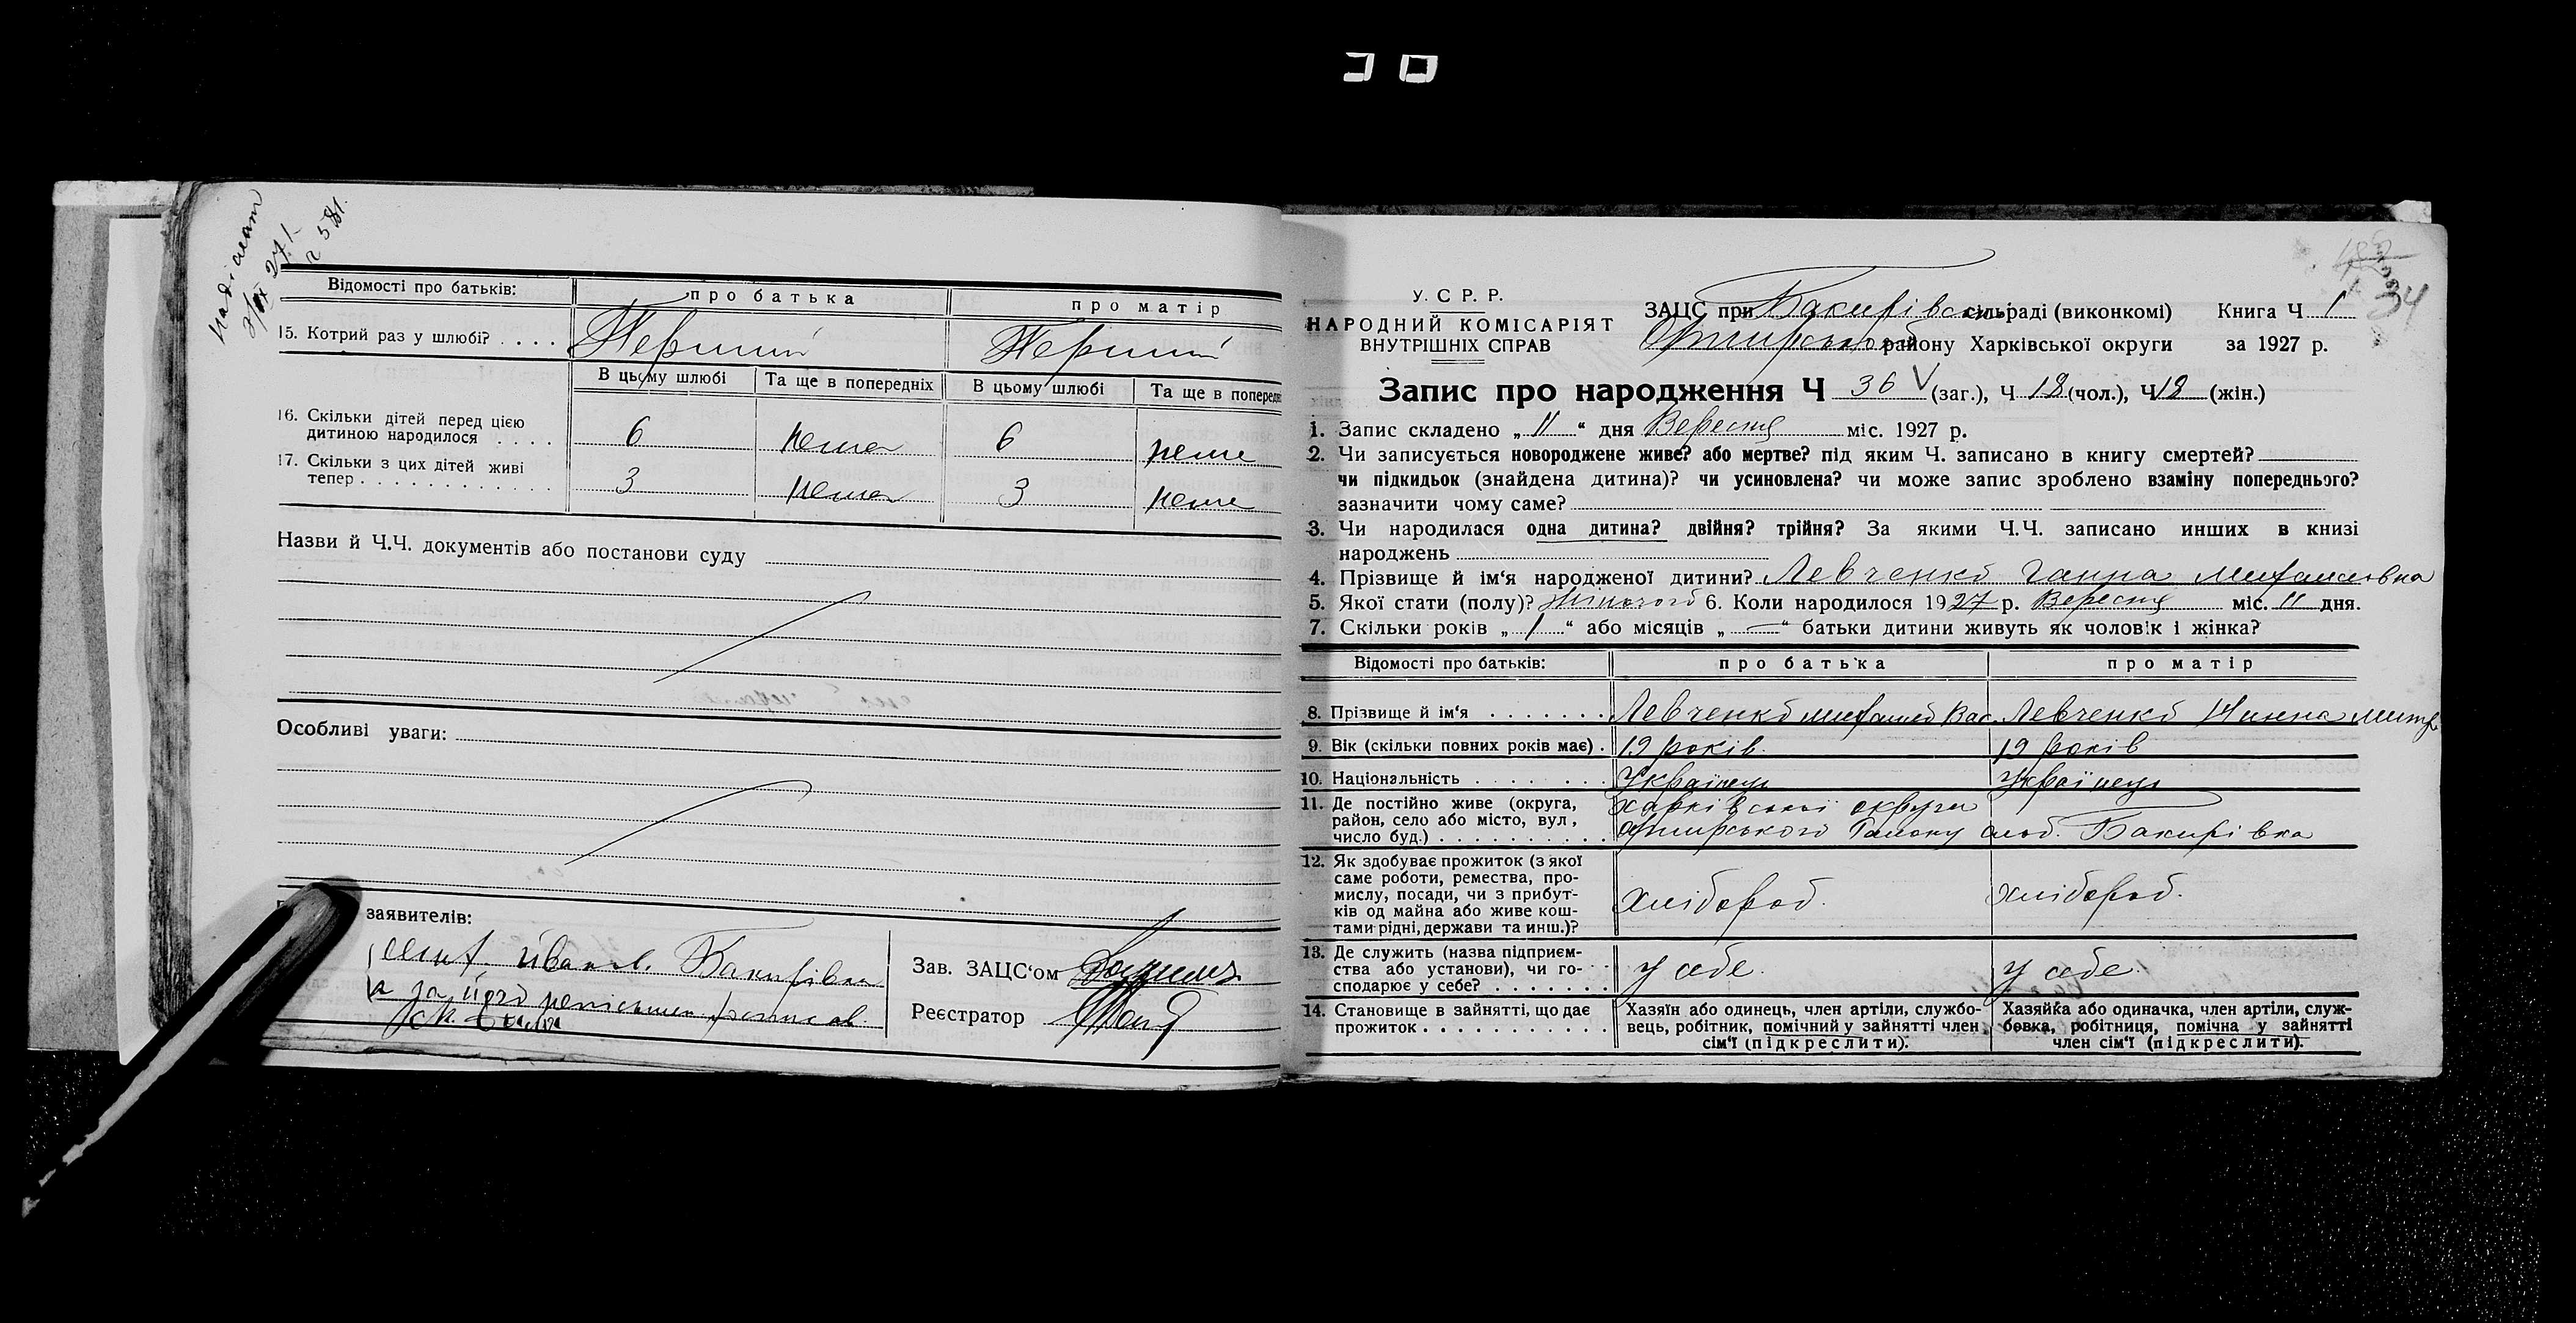 надіслат
3/IX 27 1.
Відомості про батьків: про батька про матір
15. Котрий раз у шлюбі? . . . . Перший Перший
В цьому шлюбі Та ще в попередніх В цьому шлюбі Та ще в попередн
16. Скільки дітей перед цією
дитиною народилося . . . . 6 нема 6 нема
17. Скільки з цих дітей живі
тепер . . . . . . . . . . . . 3 нема 3 нема
Назви й Ч.Ч. документів або постанови суду
Особливі уваги:
заявителів:
Иванов. Бакирівка
за його неписьмен росписав.
Зав. ЗАЦС‘ом
Реєстратор
34
У. С Р. Р.
НАРОДНИЙ КОМІСАРІЯТ
ВНУТРІШНІХ СПРАВ
ЗАЦС при Бакирівській сільраді (виконкомі) Книга Ч 1
Охтирського району Харківської округи за 1927 р.
Запис про народження Ч 36 V (заг.), Ч 18 (чол.), Ч 18 (жін.)
1. Запис складено „ 11 “ дня Вересня міс. 1927 р.
2. Чи записується новороджене живе? або мертве? під яким Ч. записано в книгу смертей?
чи підкидьок (знайдена дитина)? чи усиновлена? чи може запис зроблено взаміну попереднього?
зазначити чому саме?
3. Чи народилася одна дитина? двійня? трійня? За якими Ч.Ч. записано инших в книзі
народжень
4. Прізвище й ім‘я народженої дитини? Левченко Ганна Михайловна
5. Якої стати (полу)? Жіночого 6. Коли народилося 1927 р. Вересня міс. 11 дня.
7. Скільки років „ 1 “ або місяців „ — “ батьки дитини живуть як чоловік і жінка?
Відомості про батьків: про батька про матір
8. Прізвище й ім‘я . . . . . . . Левченко Михайло Вас. Левченко Ганна Митр.
9. Вік (скільки повних років має) . 19 років. 19 років
10. Національність . . . . . . . Українець Українець
11. Де постійно живе (округа, Харківської округи
район, село або місто, вул, Охтирського Району слоб. Бакирівка
число буд.) . . . . . . . . . .
12. Як здобуває прожиток (з якої
саме роботи, ремества, про-
мислу, посади, чи з прибут-
ків од майна або живе кош-
тами рідні, держави та инш.)? хлібороб. хлібороб.
13. Де служить (назва підприєм-
ства або установи), чи го-
сподарює у себе? . . . . . . . у себе. у себе.
14. Становище в зайнятті, що дає Хазяїн або одинець, член артіли, службо- Хазяйка або одиначка, член артіли, служ-
прожиток . . . . . . . . . . . вець, робітник, помічний у зайнятті член бовка, робітниця, помічна у зайнятті
сім‘ї (підкреслити). член сім‘ї (підкреслити).